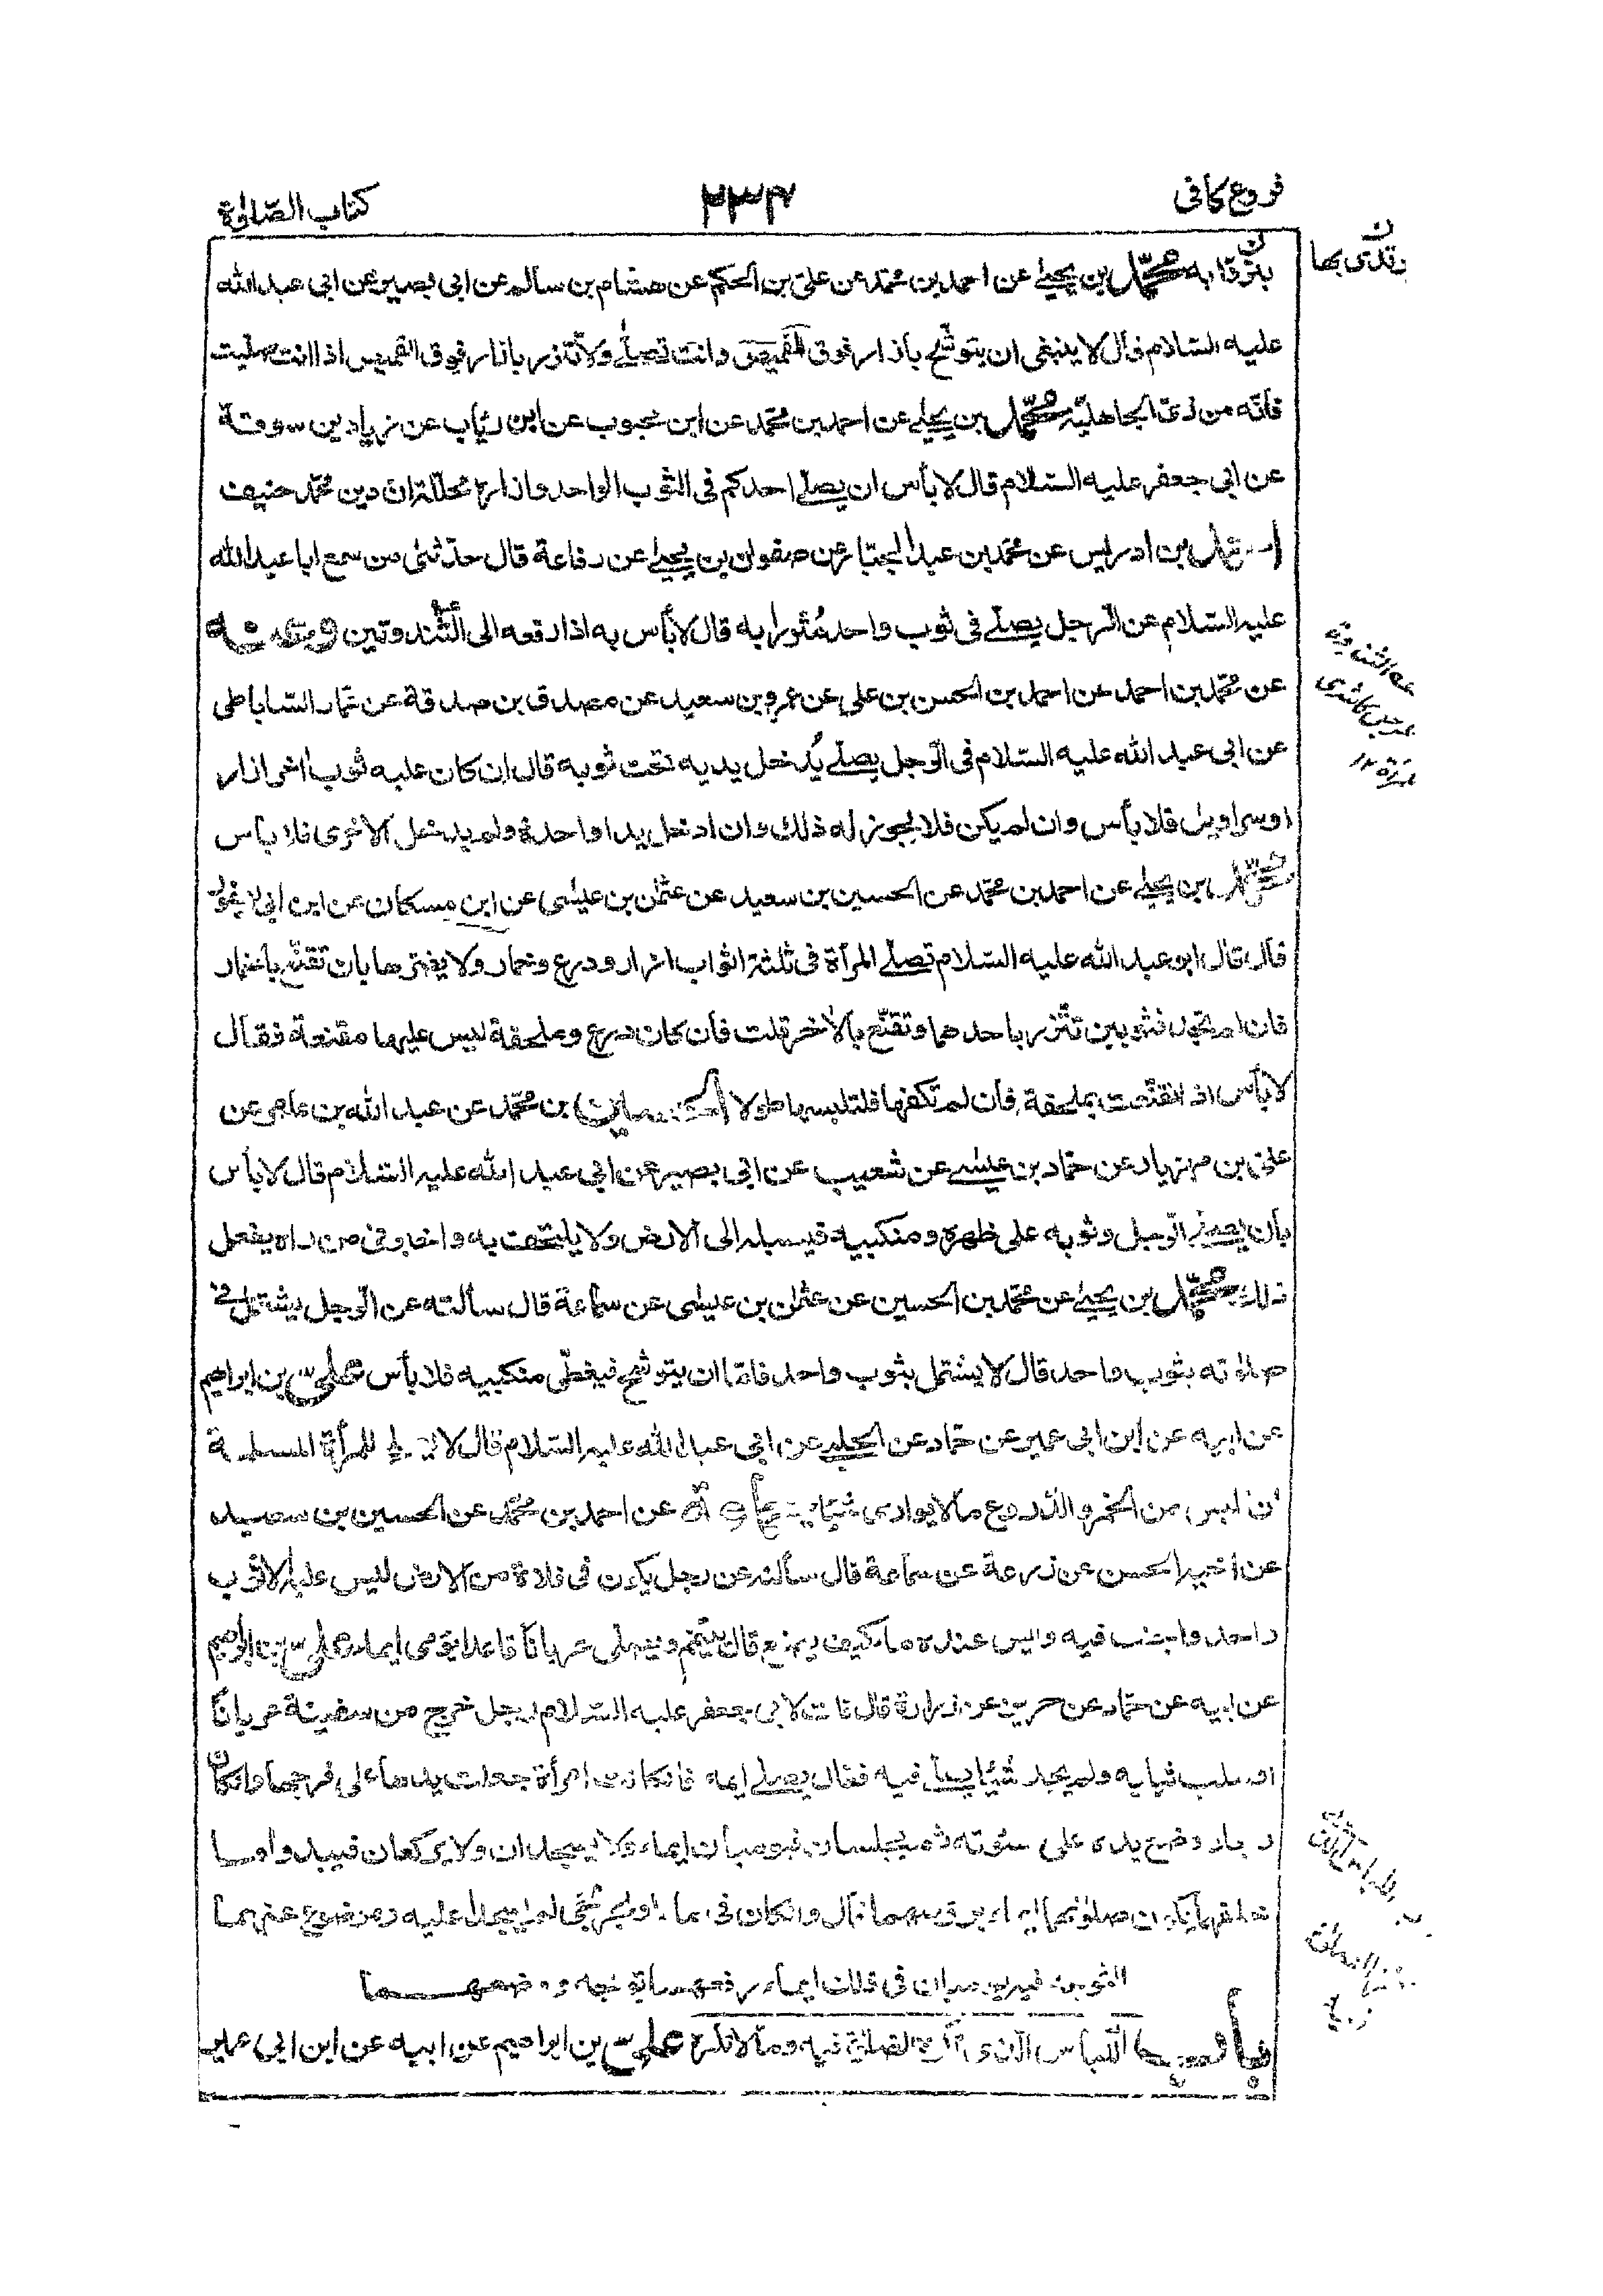 فروع کافی
٢٣٤
کتاب الصّلوة
یرتدی بها
به محمّد بن یحیی عن احمد بن محمّد عن علیّ بن الحکم عن هشام بن سالم عن ابی بصیر عن ابی عبد الله
علیه السّلام قال لا ینبغی ان یتوشّح بازار فوق القمیص وانت تصلّی ولا تتزر بازار فوق القمیص اذا انت صلیت
فانّه من زیّ الجاهلیّة محمّد بن یحیی عن احمد بن محمّد عن ابن محبوب عن ابن رئاب عن زیاد بن سوقة
عن ابی جعفر علیه السّلام قال لا بأس ان یصلّی احدکم فی الثوب الواحد وازاره محلّلة انّ دین محمّد حنیف
احمد بن ادریس عن محمّد بن عبد الجبّار عن صفوان بن یحیی عن رفاعة قال حدّثنی من سمع ابا عبد الله
علیه السّلام عن الرّجل یصلّی فی ثوب واحد متّزرا به قال لا بأس به اذا رفعه الی الثّندوتین
عن محمّد بن احمد عن احمد بن الحسن بن علی عن عمرو بن سعید عن مصدق بن صدقة عن عمّار السّاباطی
عن ابی عبد الله علیه السّلام فی الرّجل یصلّی یُدخل یدیه تحت ثوبه قال ان کان علیه ثوب اخر ازار
او سراویل فلا بأس وان لم یکن فلا یجوز له ذلک وان ادخل یدا واحدة ولم یدخل الاخری فلا بأس
محمّد بن یحیی عن احمد بن محمّد عن الحسین بن سعید عن عثمن بن عیسی عن ابن مسکان عن ابن ابی یعفور
قال قال ابو عبد الله علیه السّلام تصلّی المرأة فی ثلثة اثواب ازار ودرع وخمار ولا یضرّها بان تقنّع بالخمار
فان لم تجد فثوبین تتّزر باحدهما وتقنّع بالاخر قلت فان کان درع وملحفة لیس علیها مقنعة فقال
لا بأس اذا تقنّعت بملحفة فان لم تکفها فلتلبسها طولا الحسین بن محمّد عن عبد الله بن عامر عن
علیّ بن مهزیار عن حمّاد بن عیسی عن شعیب عن ابی بصیر عن ابی عبد الله علیه السّلام قال لا بأس
بان یصلّی الرّجل وثوبه علی ظهره ومنکبیه فیسبله الی الارض ولا یلتحف به واخبرنی من راه یفعل
ذلک محمّد بن یحیی عن محمّد بن الحسین عن عثمان بن عیسی عن سماعة قال سألته عن الرّجل یشتمل فی
صلوته بثوب واحد قال لا یشتمل بثوب واحد فامّا ان یتوشّح فیغطّی منکبیه فلا بأس علیّ بن ابراهیم
عن ابیه عن ابن ابی عمیر عن حمّاد عن الحلبی عن ابی عبد الله علیه السّلام قال لا یصلح للمرأة المسلمة
ان تلبس من الخمر والدّروع ما لا یواری شیئا عن احمد بن محمّد عن الحسین بن سعید
عن اخیه الحسن عن زرعة عن سماعة قال سألته عن رجل یکون فی فلاة من الارض لیس علیه الّا ثوب
واحد واجنب فیه ولیس عنده ماء کیف یصنع قال یتیمّم ویصلّی عریانا قاعدا یؤمی ایماء علیّ بن ابراهیم
عن ابیه عن حمّاد عن حریز عن زرارة قال قلت لابی جعفر علیه السّلام رجل خرج من سفینة عریانا
او سلب ثیابه ولم یجد شیئا یصلّی فیه فقال یصلّی ایماء فان کانت امرأة جعلت یدها علی فرجها وان کان
رجلا وضع یده علی سوءته ثم یجلسان فیومیان ایماء ولا یسجدان ولا یرکعان فیبدو ما
خلفهما تکون صلوتهما ایماء برؤسهما قال وان کان فی ماء او بحر لجّی لم یسجدا علیه وموضوع عنهما
التوجه فیه یومیان فی ذلک ایماء رفعهما توجه ووضعهما
باب اللّباس الّذی تکره الصّلوة فیه وما لا تکره علیّ بن ابراهیم عن ابیه عن ابن ابی عمیر